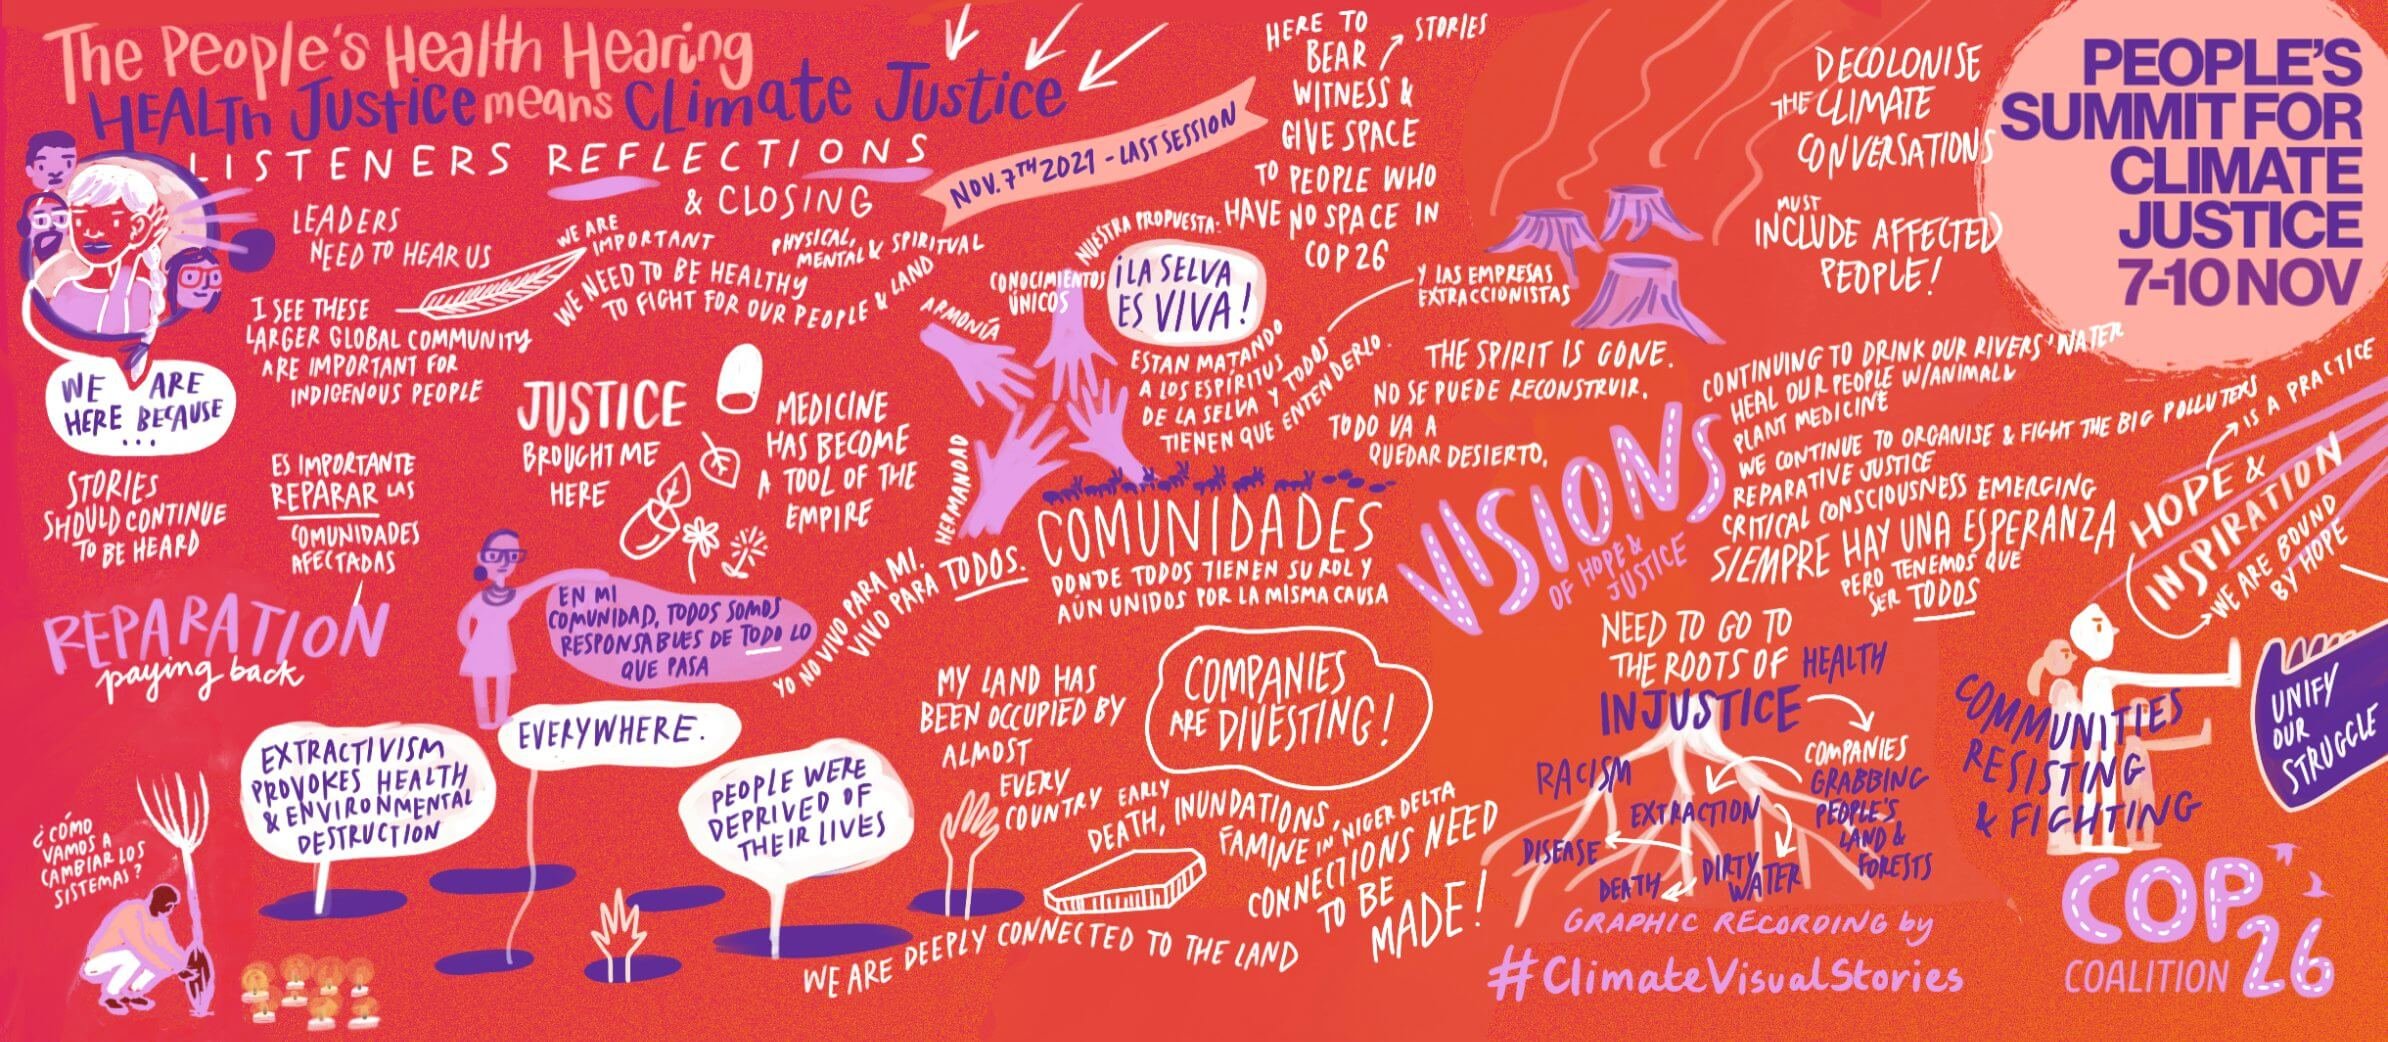 The People's Health Hearing
HEALTh JUSTICE means CLimate Justice
LISTENERS REFLECTIONS
& CLOSING
NOV. 7TH 2021 - LAST SESSION
LEADERS
NEED TO HEAR US
I SEE THESE
LARGER GLOBAL COMMUNITY
ARE IMPORTANT FOR
INDIGENOUS PEOPLE
WE ARE
IMPORTANT
PHYSICAL,
MENTAL & SPIRITUAL
WE NEED TO BE HEALTHY
TO FIGHT FOR OUR PEOPLE & LAND
WE ARE
HERE BECAUSE
...
STORIES
SHOULD CONTINUE
TO BE HEARD
ES IMPORTANTE
REPARAR LAS
COMUNIDADES
AFECTADAS
REPARATION
paying back
JUSTICE
BROUGHT ME
HERE
MEDICINE
HAS BECOME
A TOOL OF THE
EMPIRE
EN MI
COMUNIDAD, TODOS SOMOS
RESPONSABLES DE TODO LO
QUE PASA
YO NO VIVO PARA MI.
VIVO PARA TODOS.
HERMANDAD
ARMONÍA
CONOCIMIENTOS
ÚNICOS
NUESTRA PROPUESTA:
¡LA SELVA
ES VIVA!
HERE TO
BEAR
STORIES
WITNESS &
GIVE SPACE
TO PEOPLE WHO
HAVE NO SPACE IN
COP26
ESTAN MATANDO
A LOS ESPÍRITUS
DE LA SELVA Y TODOS
TIENEN QUE ENTENDERLO.
Y LAS EMPRESAS
EXTRACCIONISTAS
THE SPIRIT IS GONE.
NO SE PUEDE RECONSTRUIR.
TODO VA A
QUEDAR DESIERTO.
COMUNIDADES
DONDE TODOS TIENEN SU ROL Y
AÚN UNIDOS POR LA MISMA CAUSA
DECOLONISE
THE CLIMATE
CONVERSATIONS
MUST
INCLUDE AFFECTED
PEOPLE!
PEOPLE'S
SUMMIT FOR
CLIMATE
JUSTICE
7-10 NOV
VISIONS
OF HOPE &
JUSTICE
CONTINUING TO DRINK OUR RIVERS' WATER
HEAL OUR PEOPLE W/ANIMAL &
PLANT MEDICINE
WE CONTINUE TO ORGANISE & FIGHT THE BIG POLLUTERS
REPARATIVE JUSTICE
CRITICAL CONSCIOUSNESS EMERGING
SIEMPRE HAY UNA ESPERANZA
PERO TENEMOS QUE
SER TODOS
HOPE &
INSPIRATION
IS A PRACTICE
WE ARE BOUND
BY HOPE
¿CÓMO
VAMOS A
CAMBIAR LOS
SISTEMAS?
EXTRACTIVISM
PROVOKES HEALTH
& ENVIRONMENTAL
DESTRUCTION
EVERYWHERE.
PEOPLE WERE
DEPRIVED OF
THEIR LIVES
MY LAND HAS
BEEN OCCUPIED BY
ALMOST
EVERY
COUNTRY
COMPANIES
ARE DIVESTING!
EARLY
DEATH, INUNDATIONS,
FAMINE IN NIGER DELTA
CONNECTIONS NEED
TO BE
MADE!
WE ARE DEEPLY CONNECTED TO THE LAND
NEED TO GO TO
THE ROOTS OF HEALTH
INJUSTICE
RACISM
EXTRACTION
DISEASE
DEATH
DIRTY
WATER
COMPANIES
GRABBING
PEOPLE'S
LAND &
FORESTS
COMMUNITIES
RESISTING
& FIGHTING
UNIFY
OUR
STRUGGLE
GRAPHIC RECORDING by
#ClimateVisualStories
COP
26
COALITION